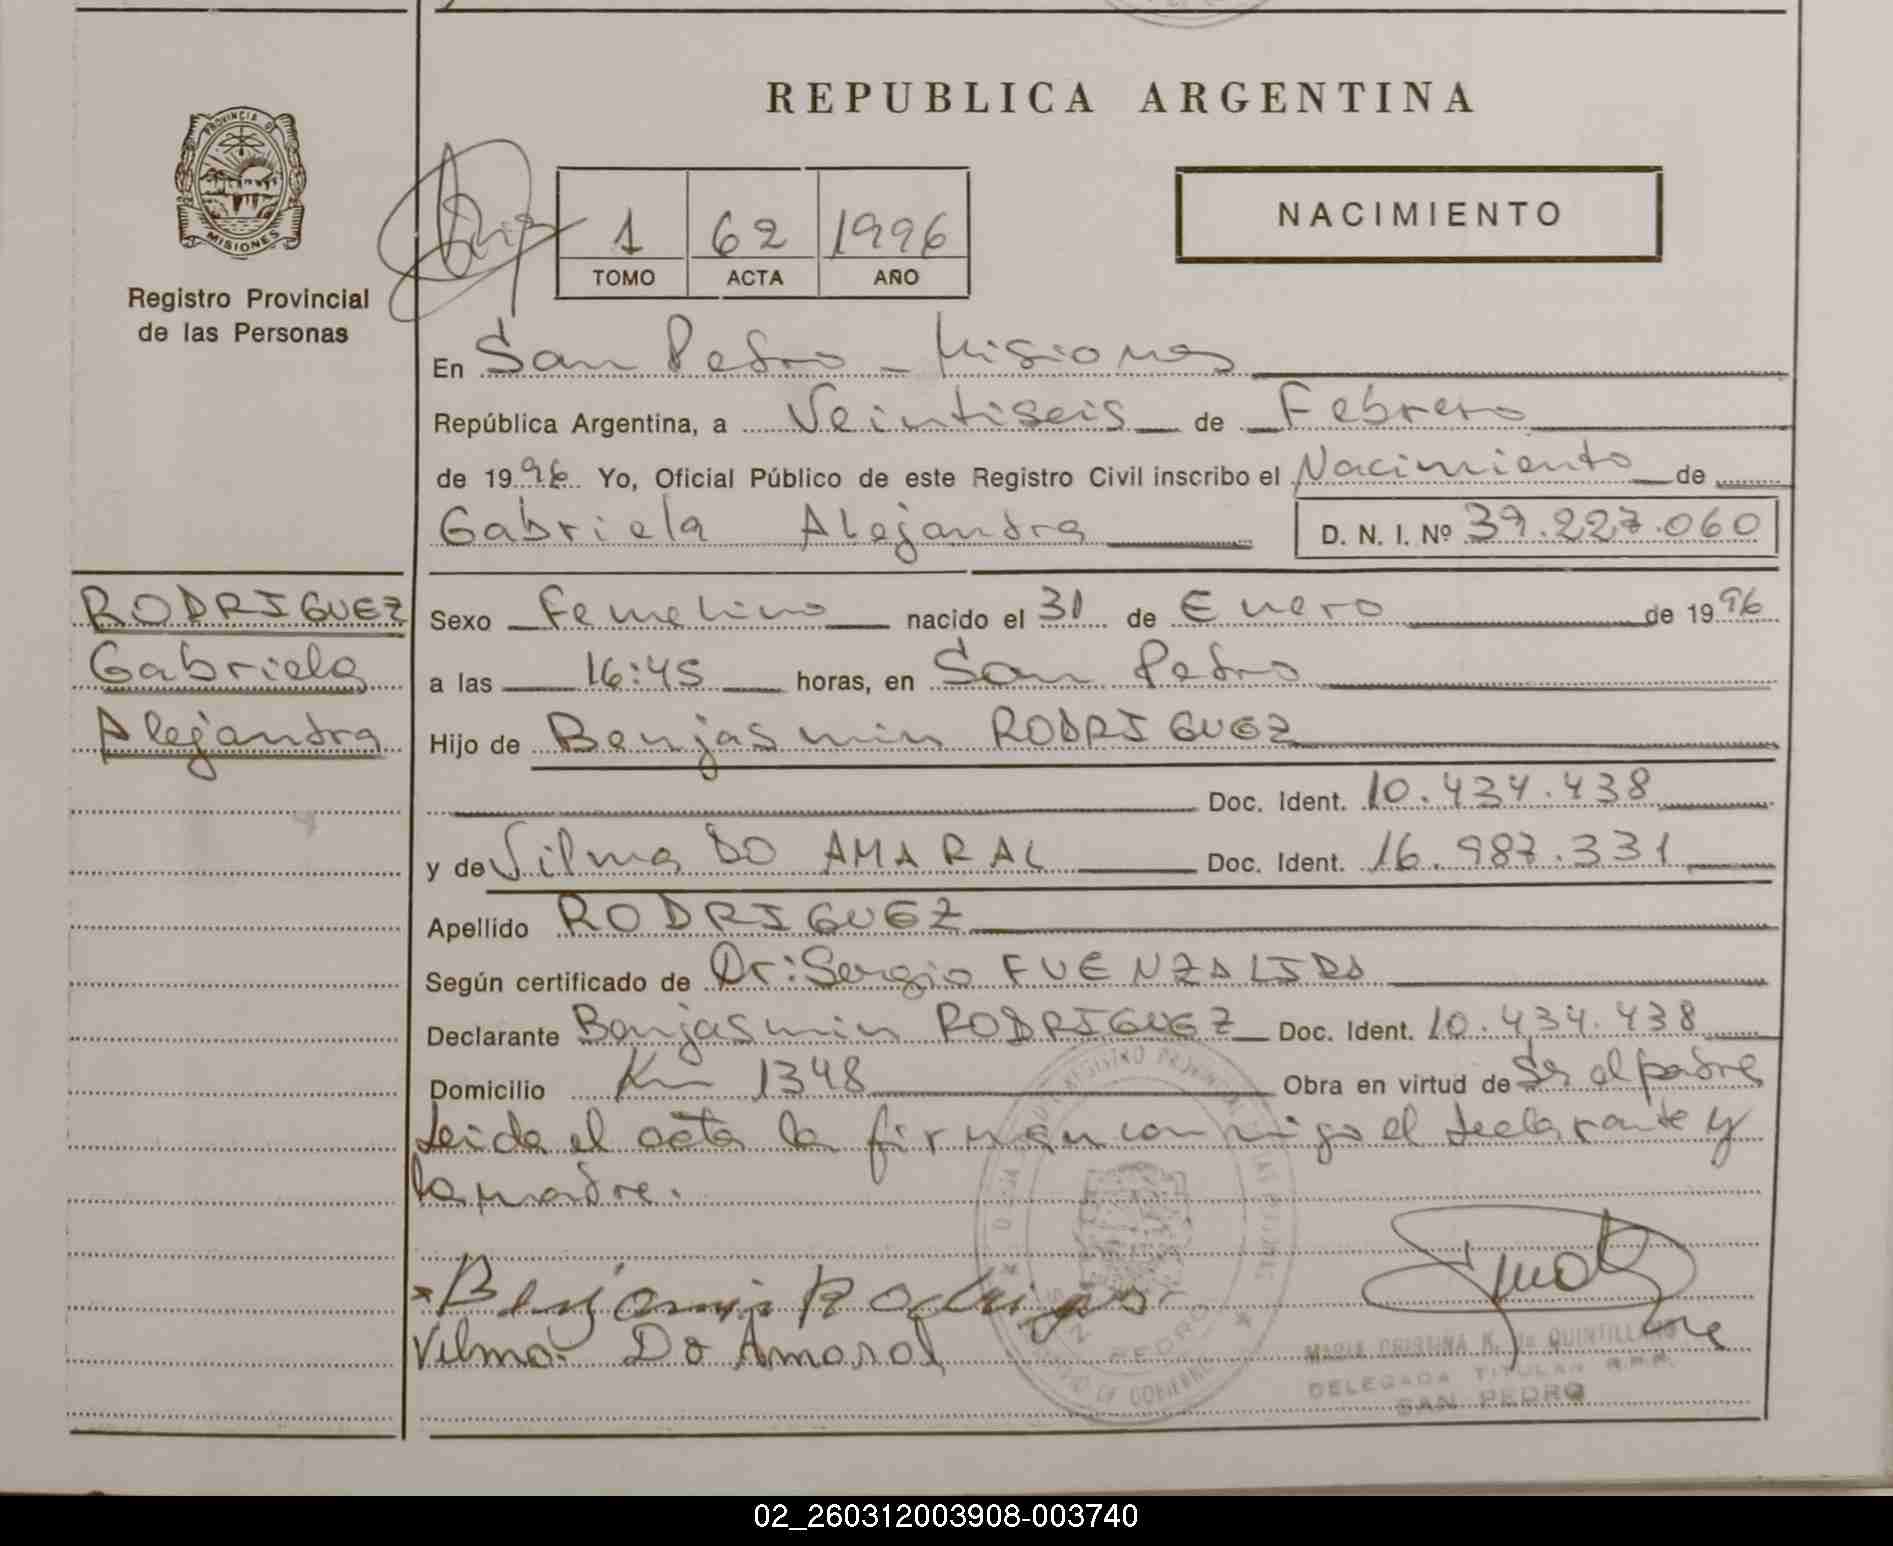 REPUBLICA ARGENTINA
PROVINCIA DE
MISIONES
Registro Provincial
de las Personas
1 62 1996
TOMO ACTA AÑO
NACIMIENTO
En San Pedro - Misiones
República Argentina, a Veintiseis de Febrero
de 1996 Yo, Oficial Público de este Registro Civil inscribo el Nacimiento de
Gabriela Alejandra D. N. I. Nº 39.227.060
RODRIGUEZ
Gabriela
Alejandra
Sexo Femenino nacido el 31 de Enero de 1996
a las 16:45 horas, en San Pedro
Hijo de Benjasmin RODRIGUEZ
Doc. Ident. 10.434.438
y de Vilma DO AMARAL Doc. Ident. 16.987.331
Apellido RODRIGUEZ
Según certificado de Dr: Sergio FUENZALIDA
Declarante Benjasmin RODRIGUEZ Doc. Ident. 10.434.438
Domicilio Km 1348 Obra en virtud de Ser el padre
Leida el acta la firman conmigo el declarante y
la madre.
Benjamin Rodrigues
Vilma Do Amaral
MARIA CRISTINA K. de QUINTILLAN
DELEGADA TITULAR R.P.P.
SAN PEDRO
02_260312003908-003740